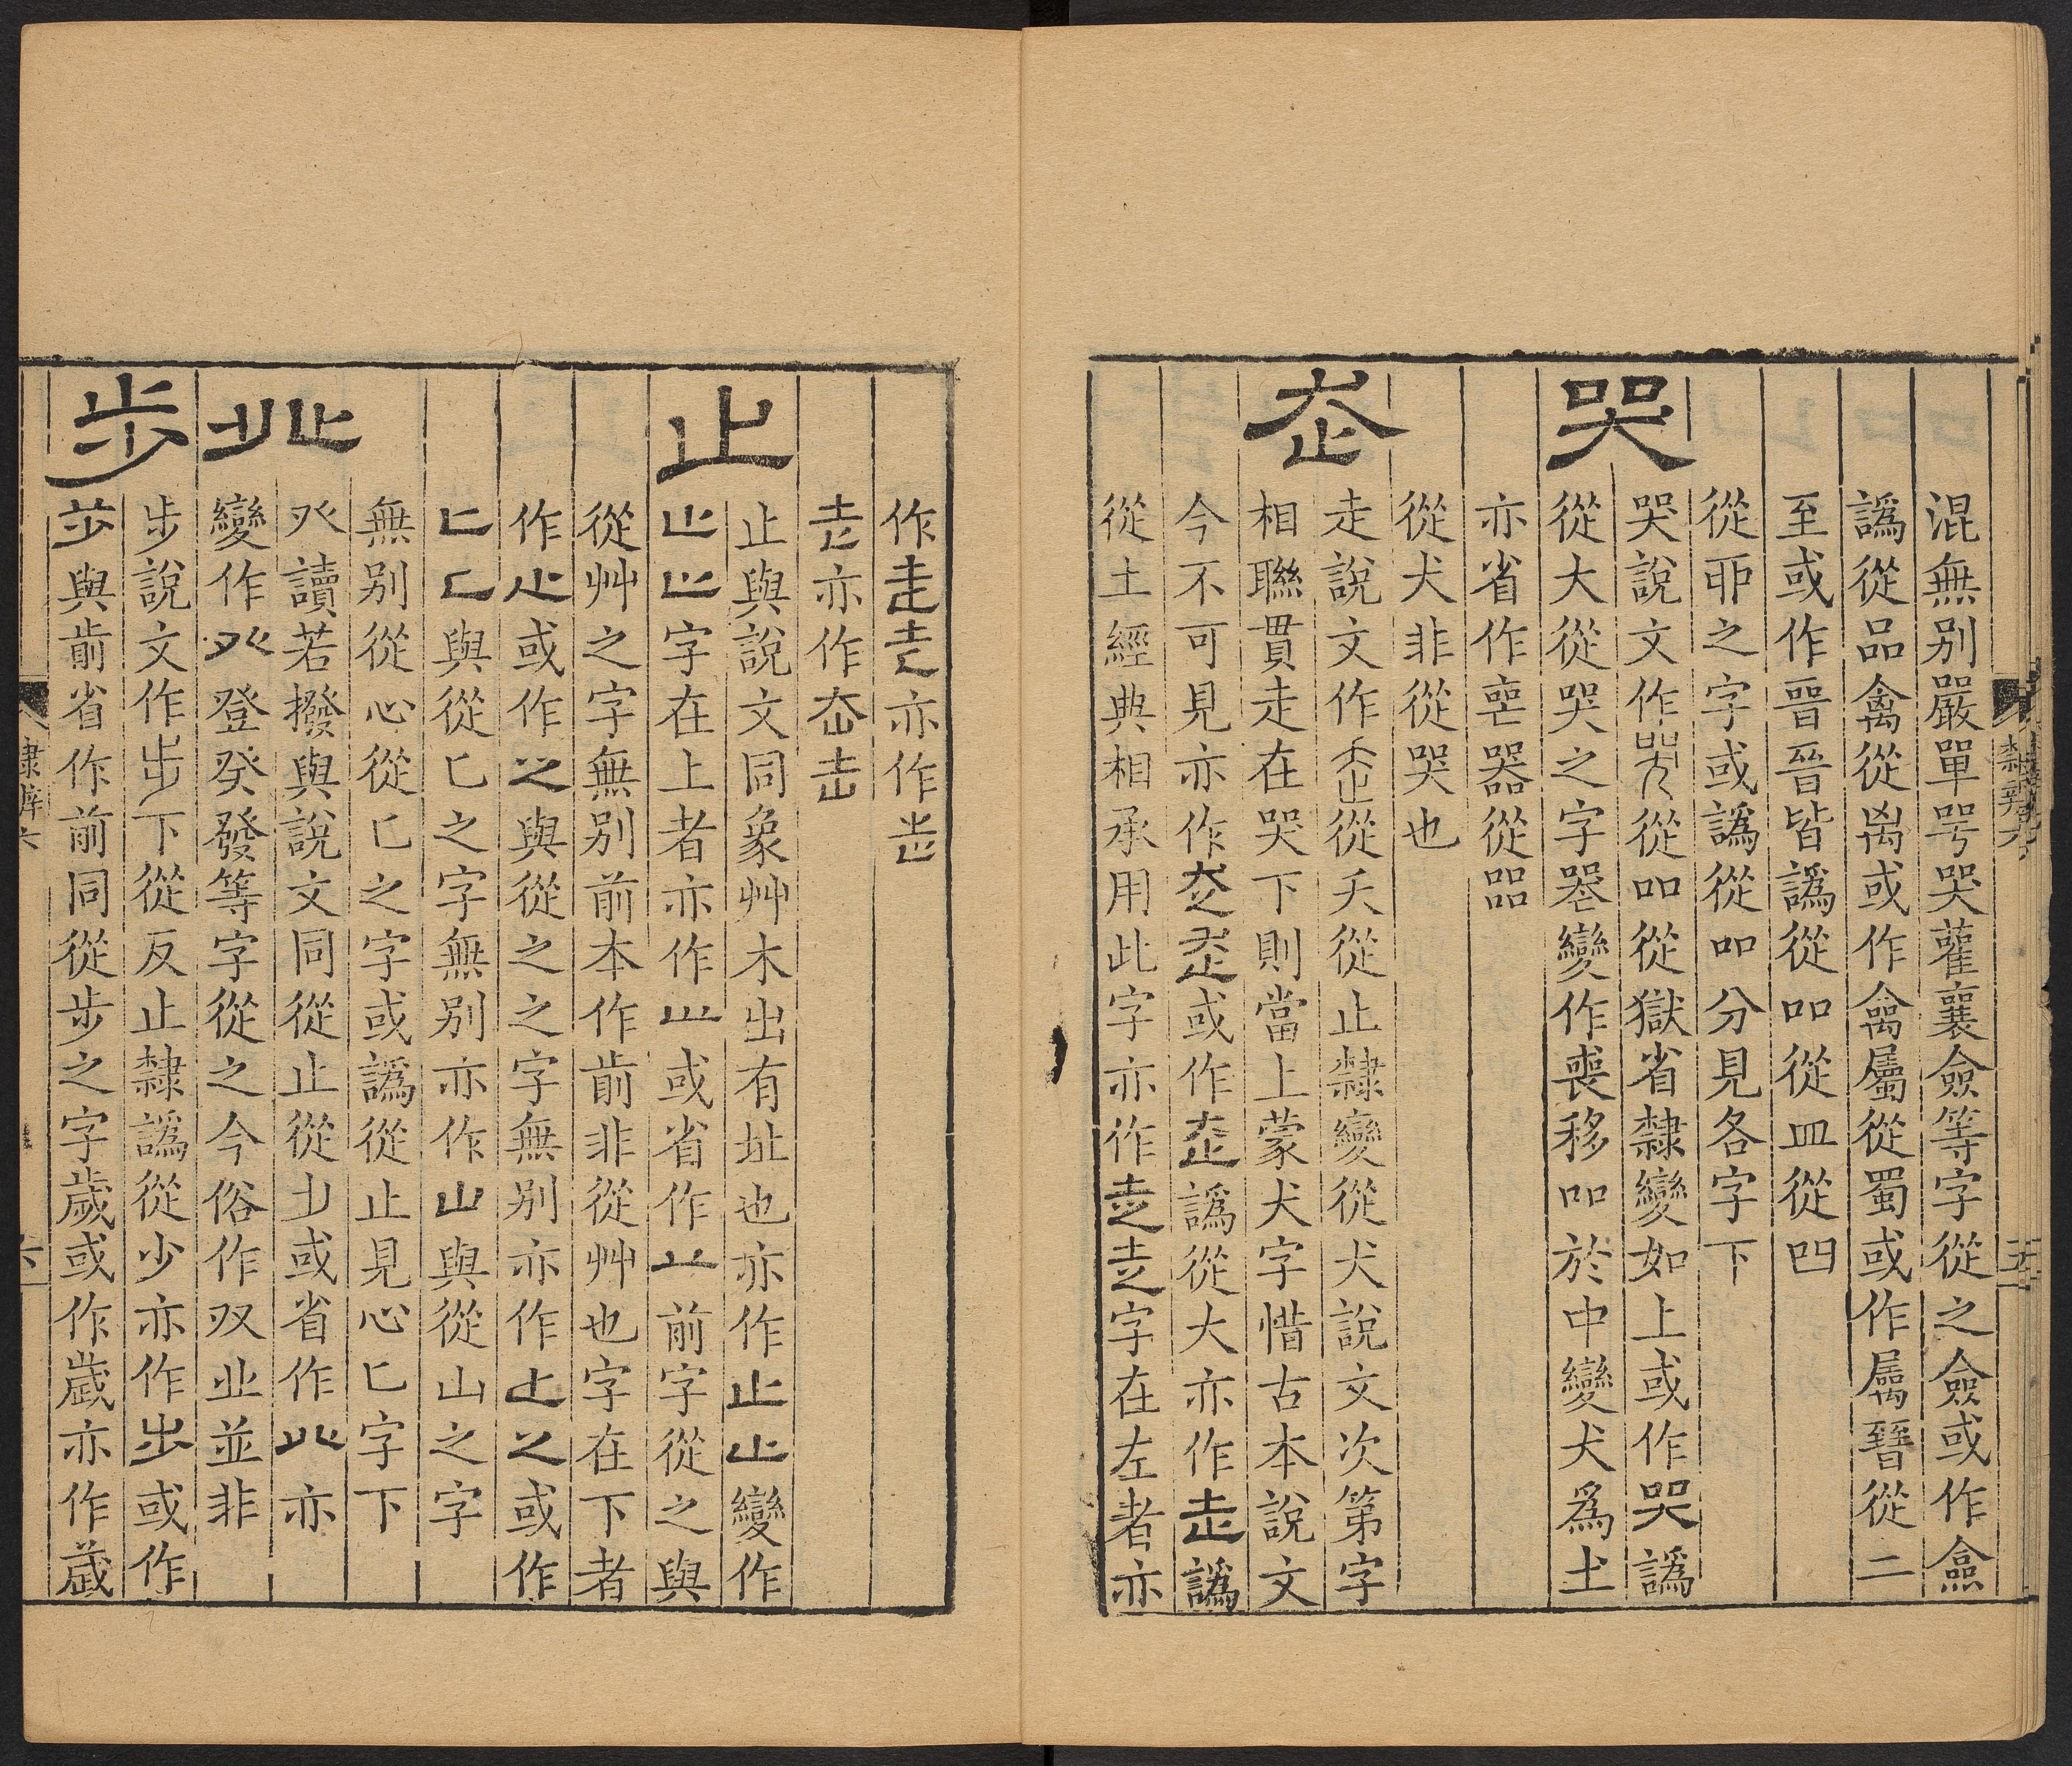 混無别嚴單咢哭雚襄僉等字從之僉或作僉
譌從品禽從禸或作禽屬從蜀或作属晉從二
至或作晉晉皆譌從吅從皿從凹
從吅之字或譌從吅分見各字下
哭
哭說文作哭從吅從獄省隸變如上或作哭譌
從大從哭之字喪變作喪移吅於中變犬爲土
亦省作器從㗊
從犬非從哭也
走
走說文作從夭從止隸變從犬說文次第字
相聯貫走在哭下則當上蒙犬字惜古本說文
今不可見亦作或作譌從大亦作走譌
從土經典相承用此字亦作字在左者亦
隸辨六
五
作亦作
亦作
止
止與說文同象艸木出有址也亦作止止變作
字在上者亦作或省作䒑前字從之與
從艸之字無别前本作歬非從艸也字在下者
作或作之與從之之字無别亦作或作
與從匕之字無别亦作山與從山之字
無别從心從匕之字或譌從止見心匕字下
癶
癶讀若撥與說文同從止從或省作亦
變作癶登癸發等字從之今俗作双业並非
步
步說文作步下從反止隸譌從少亦作或作
與歬省作前同從步之字歲或作歲亦作
隸辨六
六